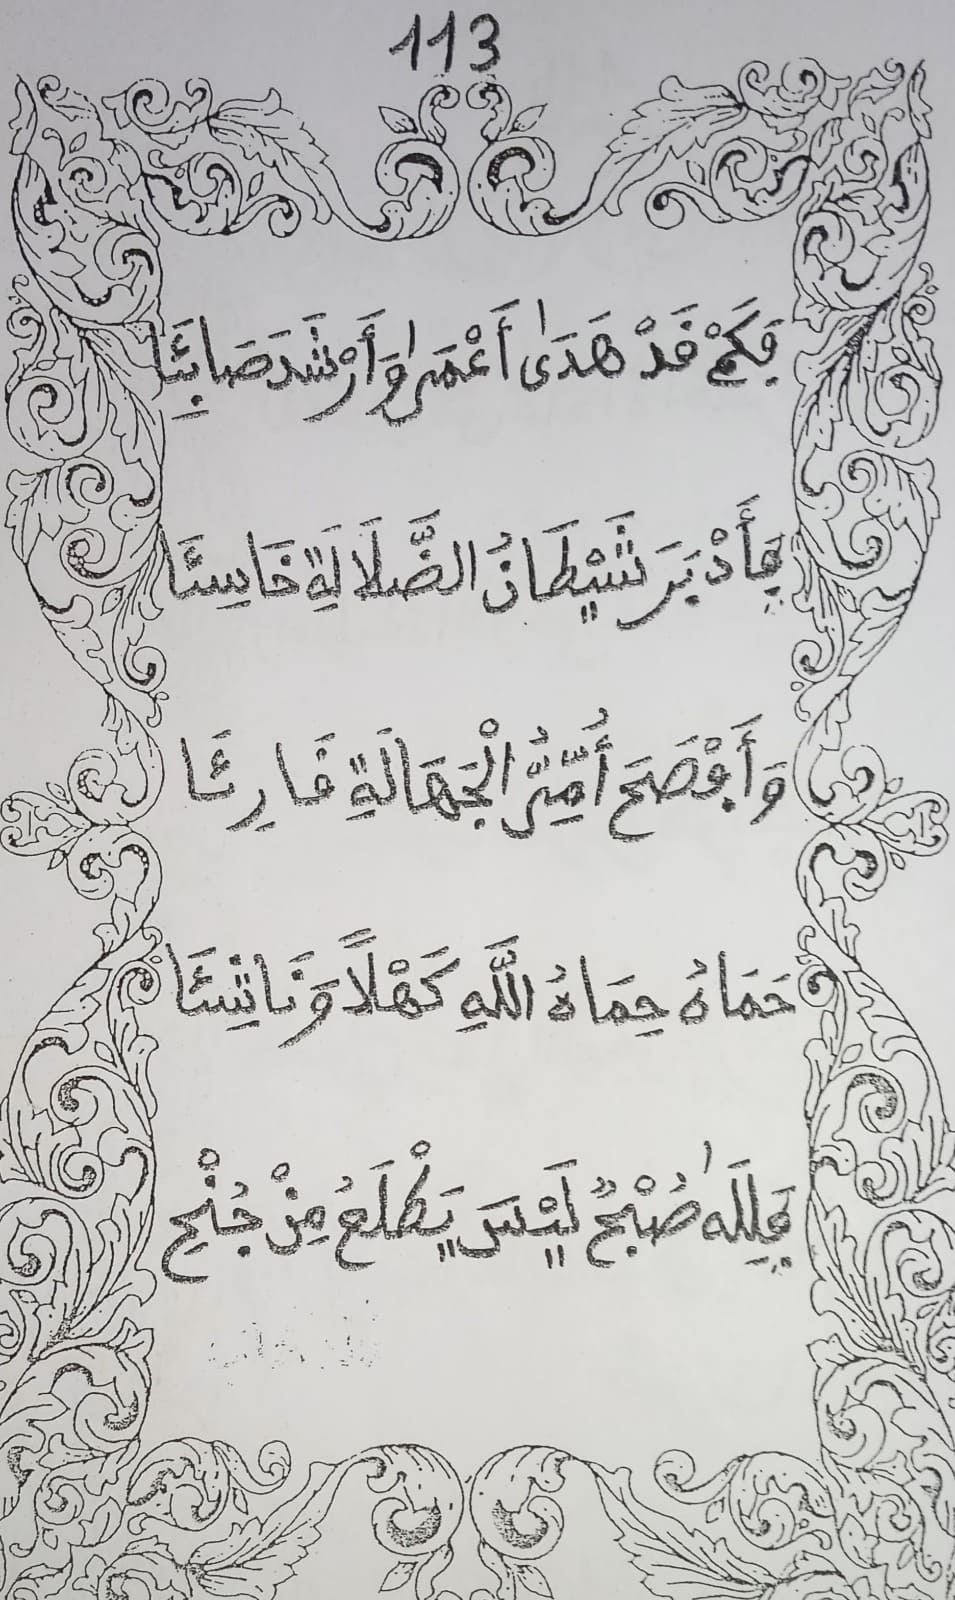 113
فَكَمْ قَدْ هَدَىٰ أَعْمَىٰ وَأَرْشَدَ صَابِئَا
فَأَدْبَرَ شَيْطَانُ الضَّلَالَةِ خَاسِئَا
وَأَفْصَحَ أُمِّيُّ الْجَهَالَةِ قَارِئَا
حَمَاهُ حِمَاهُ اللَّهِ كَهْلًا وَنَاشِئَا
فَلِلَّهِ صُبْحٌ لَيْسَ يَطْلَعُ مِنْ جُنْحِ